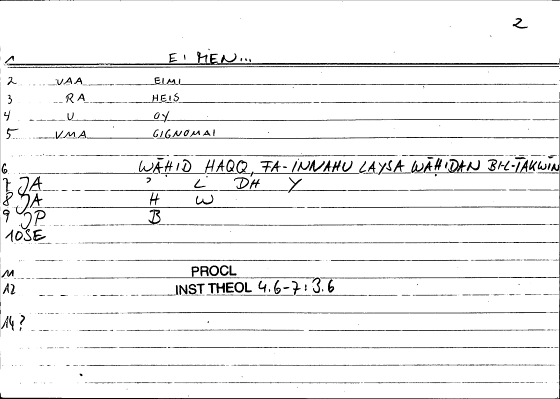 2
1 EI MEN...
2 VAA EIMI
3 RA HEIS
4 U OY
5 VMA GIGNOMAI
6 WĀḤID ḤAQQ, FA-INNAHU LAYSA WĀḤIDAN BIL-TAKWĪN
7 JA ʾ L DH Y
8 JA H W
9 JP B
10 SE
11 PROCL
12 INST THEOL 4.6-7:3.6
14?